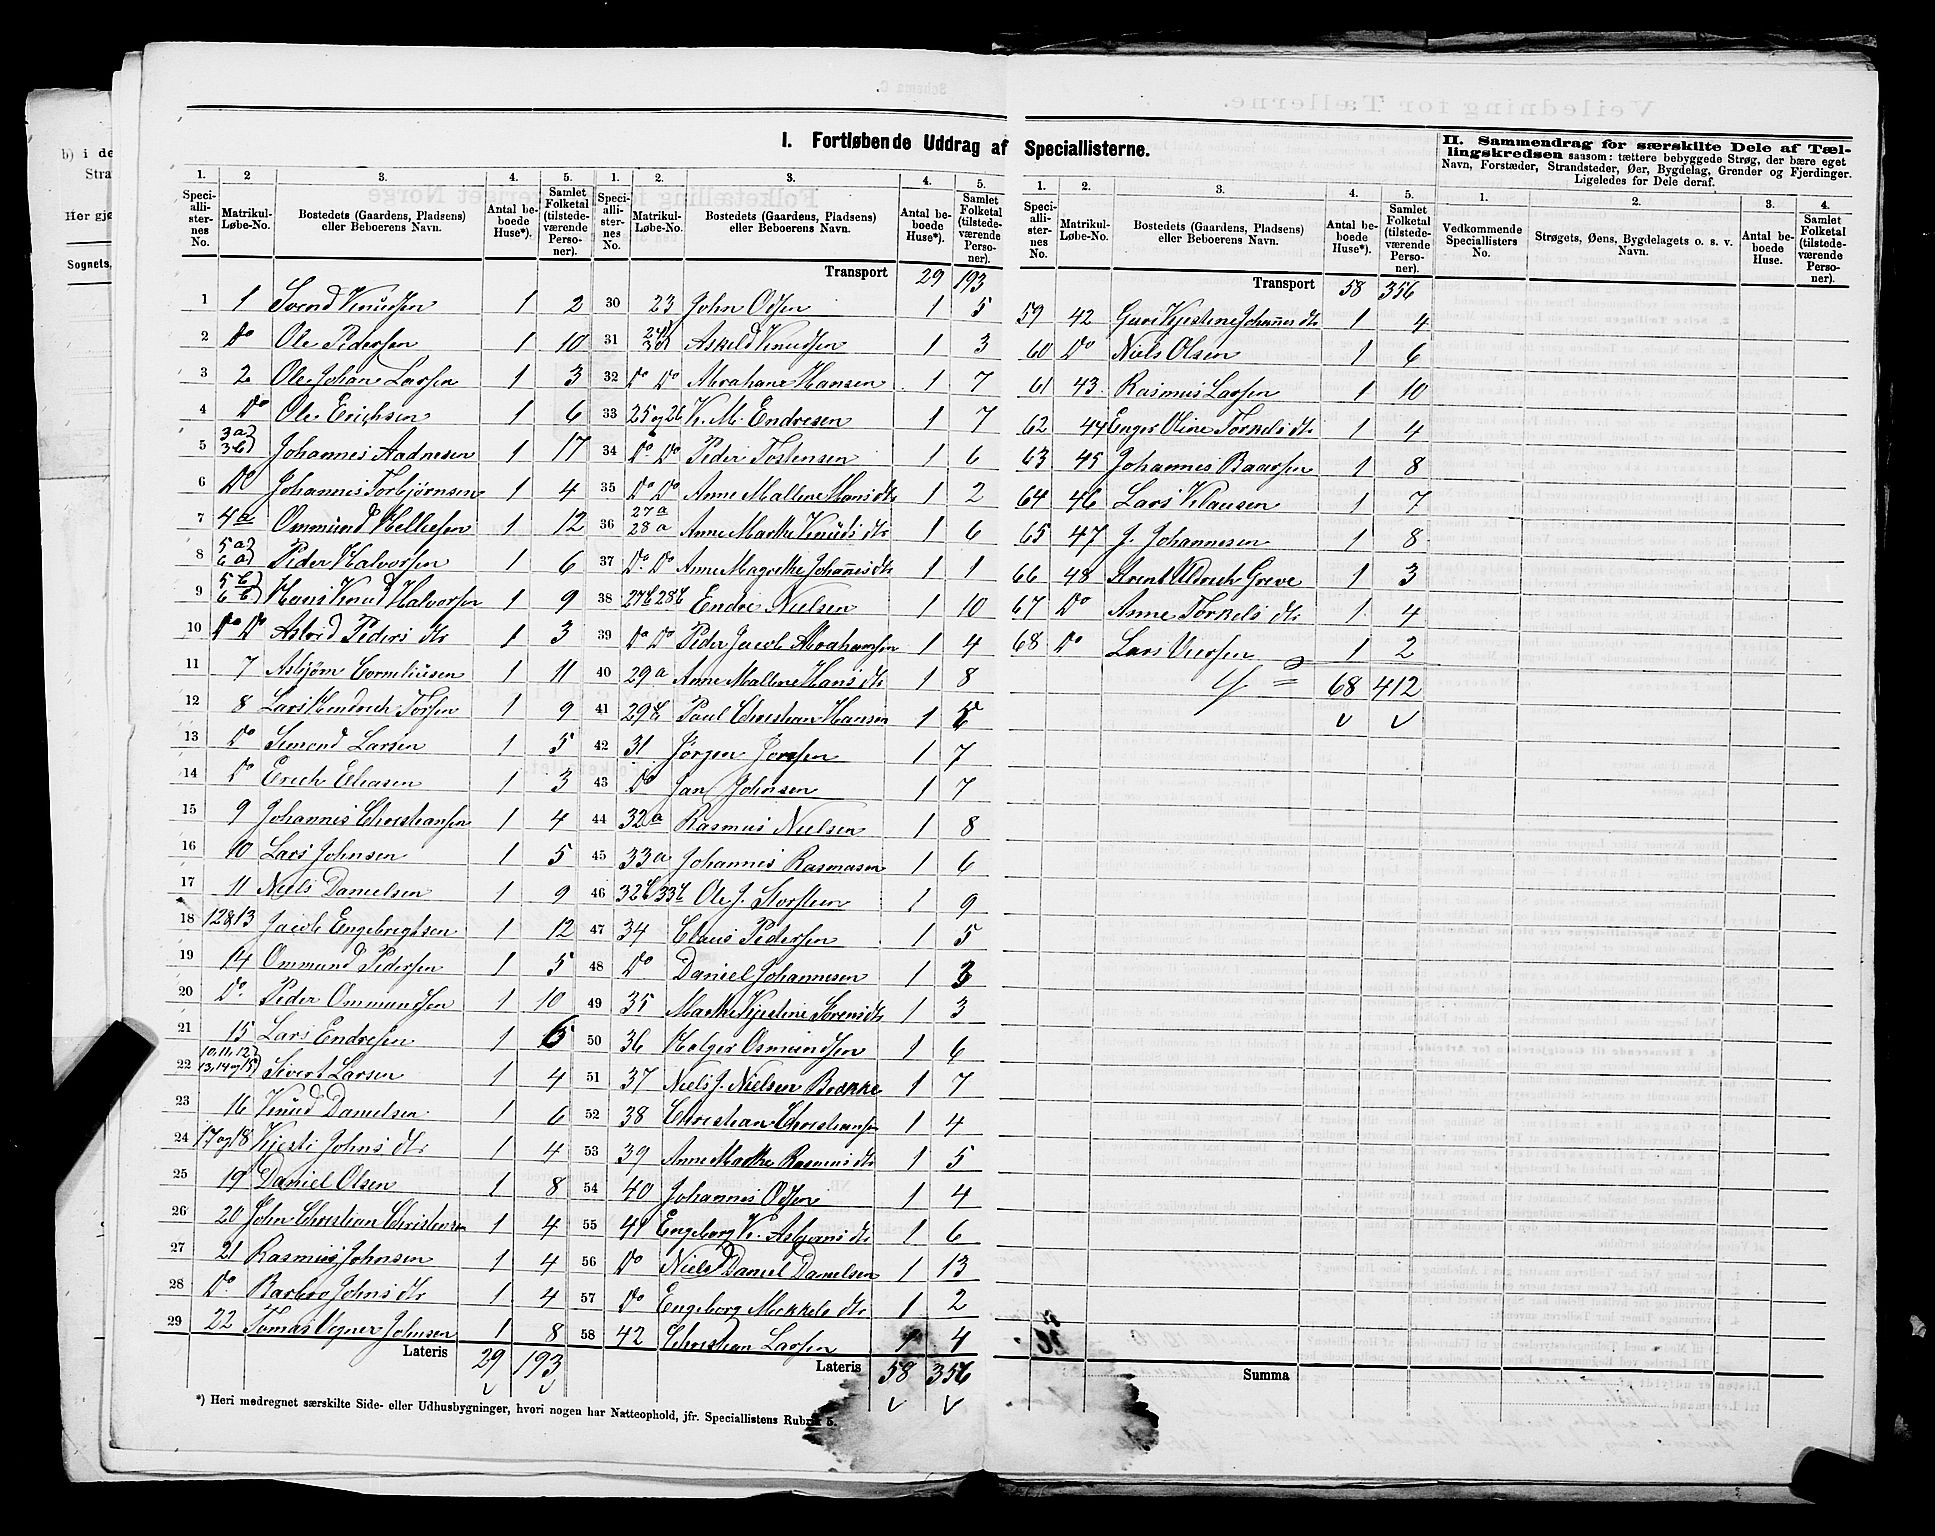 b) i de
Stra
Her gjø
Sognets,
I. Fortløbende Uddrag af Speciallisterne.
II. Sammendrag for særskilte Dele af Tællingskredsen saasom: tættere bebyggede Strøg, der bære eget Navn, Forstæder, Strandsteder, Øer, Bygdelag, Grender og Fjerdinger. Ligeledes for Dele deraf.
1. 2 3. 4. 5. 1. 2. 3. 4. 5. 1. 2. 3. 4. 5. 1. 2. 3. 4.
Speciallisternes No. Matrikul-Løbe-No. Bostedets (Gaardens, Pladsens) eller Beboerens Navn. Antal beboede Huse*). Samlet Folketal (tilstedeværende Personer).
Speciallisternes No. Matrikul-Løbe-No. Bostedets (Gaardens, Pladsens) eller Beboerens Navn. Antal beboede Huse*). Samlet Folketal (tilstedeværende Personer).
Speciallisternes No. Matrikul-Løbe-No. Bostedets (Gaardens, Pladsens) eller Beboerens Navn. Antal beboede Huse*). Samlet Folketal (tilstedeværende Personer).
Vedkommende Speciallisters No. Strøgets, Øens, Bygdelagets o. s. v. Navn. Antal beboede Huse. Samlet Folketal (tilstedeværende Personer).
1 1 Svend Knudsen 1 2
2 Do Ole Pedersen 1 10
3 2 Ole Johan Larsen 1 3
4 Do Ole Erichsen 1 6
5 3a) 3b) Johannes Aadnesen 1 17
6 Do Johannes Torbjørnsen 1 4
7 4a Ommund Helliesen 1 12
8 5a) 6a) Peder Halvorsen 1 6
9 5b) 6b) Hans Knud Halvorsen 1 9
10 Do Do Astrid Peders dtr 1 3
11 7 Asbjørn Corneliusen 1 11
12 8 Lars Hendrich Torsen 1 9
13 Do Simond Larsen 1 5
14 Do Erich Eliasen 1 3
15 9 Johannes Christiansen 1 4
16 10 Lars Johnsen 1 5
17 11 Niels Danielsen 1 9
18 12&13 Jacob Engebregtsen 1 12
19 14 Ommund Pedersen 1 5
20 Do. Peder Ommundsen 1 10
21 15 Lars Endresen 1 6
22 10,11,12) 13,14og15) Sivert Larsen 1 4
23 16 Knud Danielsen 1 6
24 17og18 Kjesti Johns dtr 1 4
25 19 Daniel Olsen 1 8
26 20 John Christian Christensen 1 4
27 21 Rasmus Johnsen 1 4
28 Do. Barbro Johns dtr 1 4
29 22 Tomas Vogner Johnsen 1 8
Lateris 29 193
Transport 29 193
30 23 John Odsen 1 5
31 Askild Knudsen 1 3
32 Do Do Abraham Hansen 1 7
33 25og26 K. M. Endresen 1 7
34 Do Do Peder Tostensen 1 6
35 Do Do Anne Mallene Hans dtr 1 2
36 27a 28a Anne Marthe Knuds dtr 1 6
37 Do. Do Anne Magrethe Johannes dtr 1 1
38 27b 28b Endre Nielsen 1 10
39 Do Do Peder Jacob Abrahamsen 1 4
40 29a Anne Mallene Hans dtr 1 8
41 29b Paul Christian Hansen 1
42 31 Jørgen 1 7
43 Do Jan Johnsen 1 7
44 32a Rasmus Nielsen 1 8
45 33a Johannes Rasmusen 1 6
46 32b 33b Ole J. Storsteen 1 9
47 34 Claus Pedersen 1 5
48 Do Daniel Johannesen 1 3
49 35 Marthe Kjestine Sørens dtr 1 3
50 36 Holger Osmundsen 1 6
51 37 Niels J. Nielsen Brække 1 7
52 38 Christian Christiansen 1 4
53 39 Anne Marthe Rasmus dtr 1 5
54 40 Johannes Odsen 1 4
55 41 Engeborg K. Asbjørns dtr 1 6
56 Do Niels Daniel Danielsen 1 13
57 Do Engeborg Mickkels dtr 1 2
58 42 Christian Larsen 1 4
Lateris 58 356
Transport 58 356
59 42 Guri Kjestine Johannes dtr 1 4
60 Do Niels Olsen 1 6
61 43 Rasmus Larsen 1 10
62 44 Enger Oline Torkels dtr 1 4
63 45 Johannes Baarsen 1 8
64 46 Lars Klausen 1 7
65 47 J. Johannesen 1 8
66 48 Arent Uldrich Greve 1 3
67 Do Anne Torkels dtr 1 4
68 Do Lars Iversen 1 2
68 412
Summa
*) Heri medregnet særskilte Side- eller Udhusbygninger, hvori nogen har Natteophold, jfr. Speciallistens Rubrik 5.